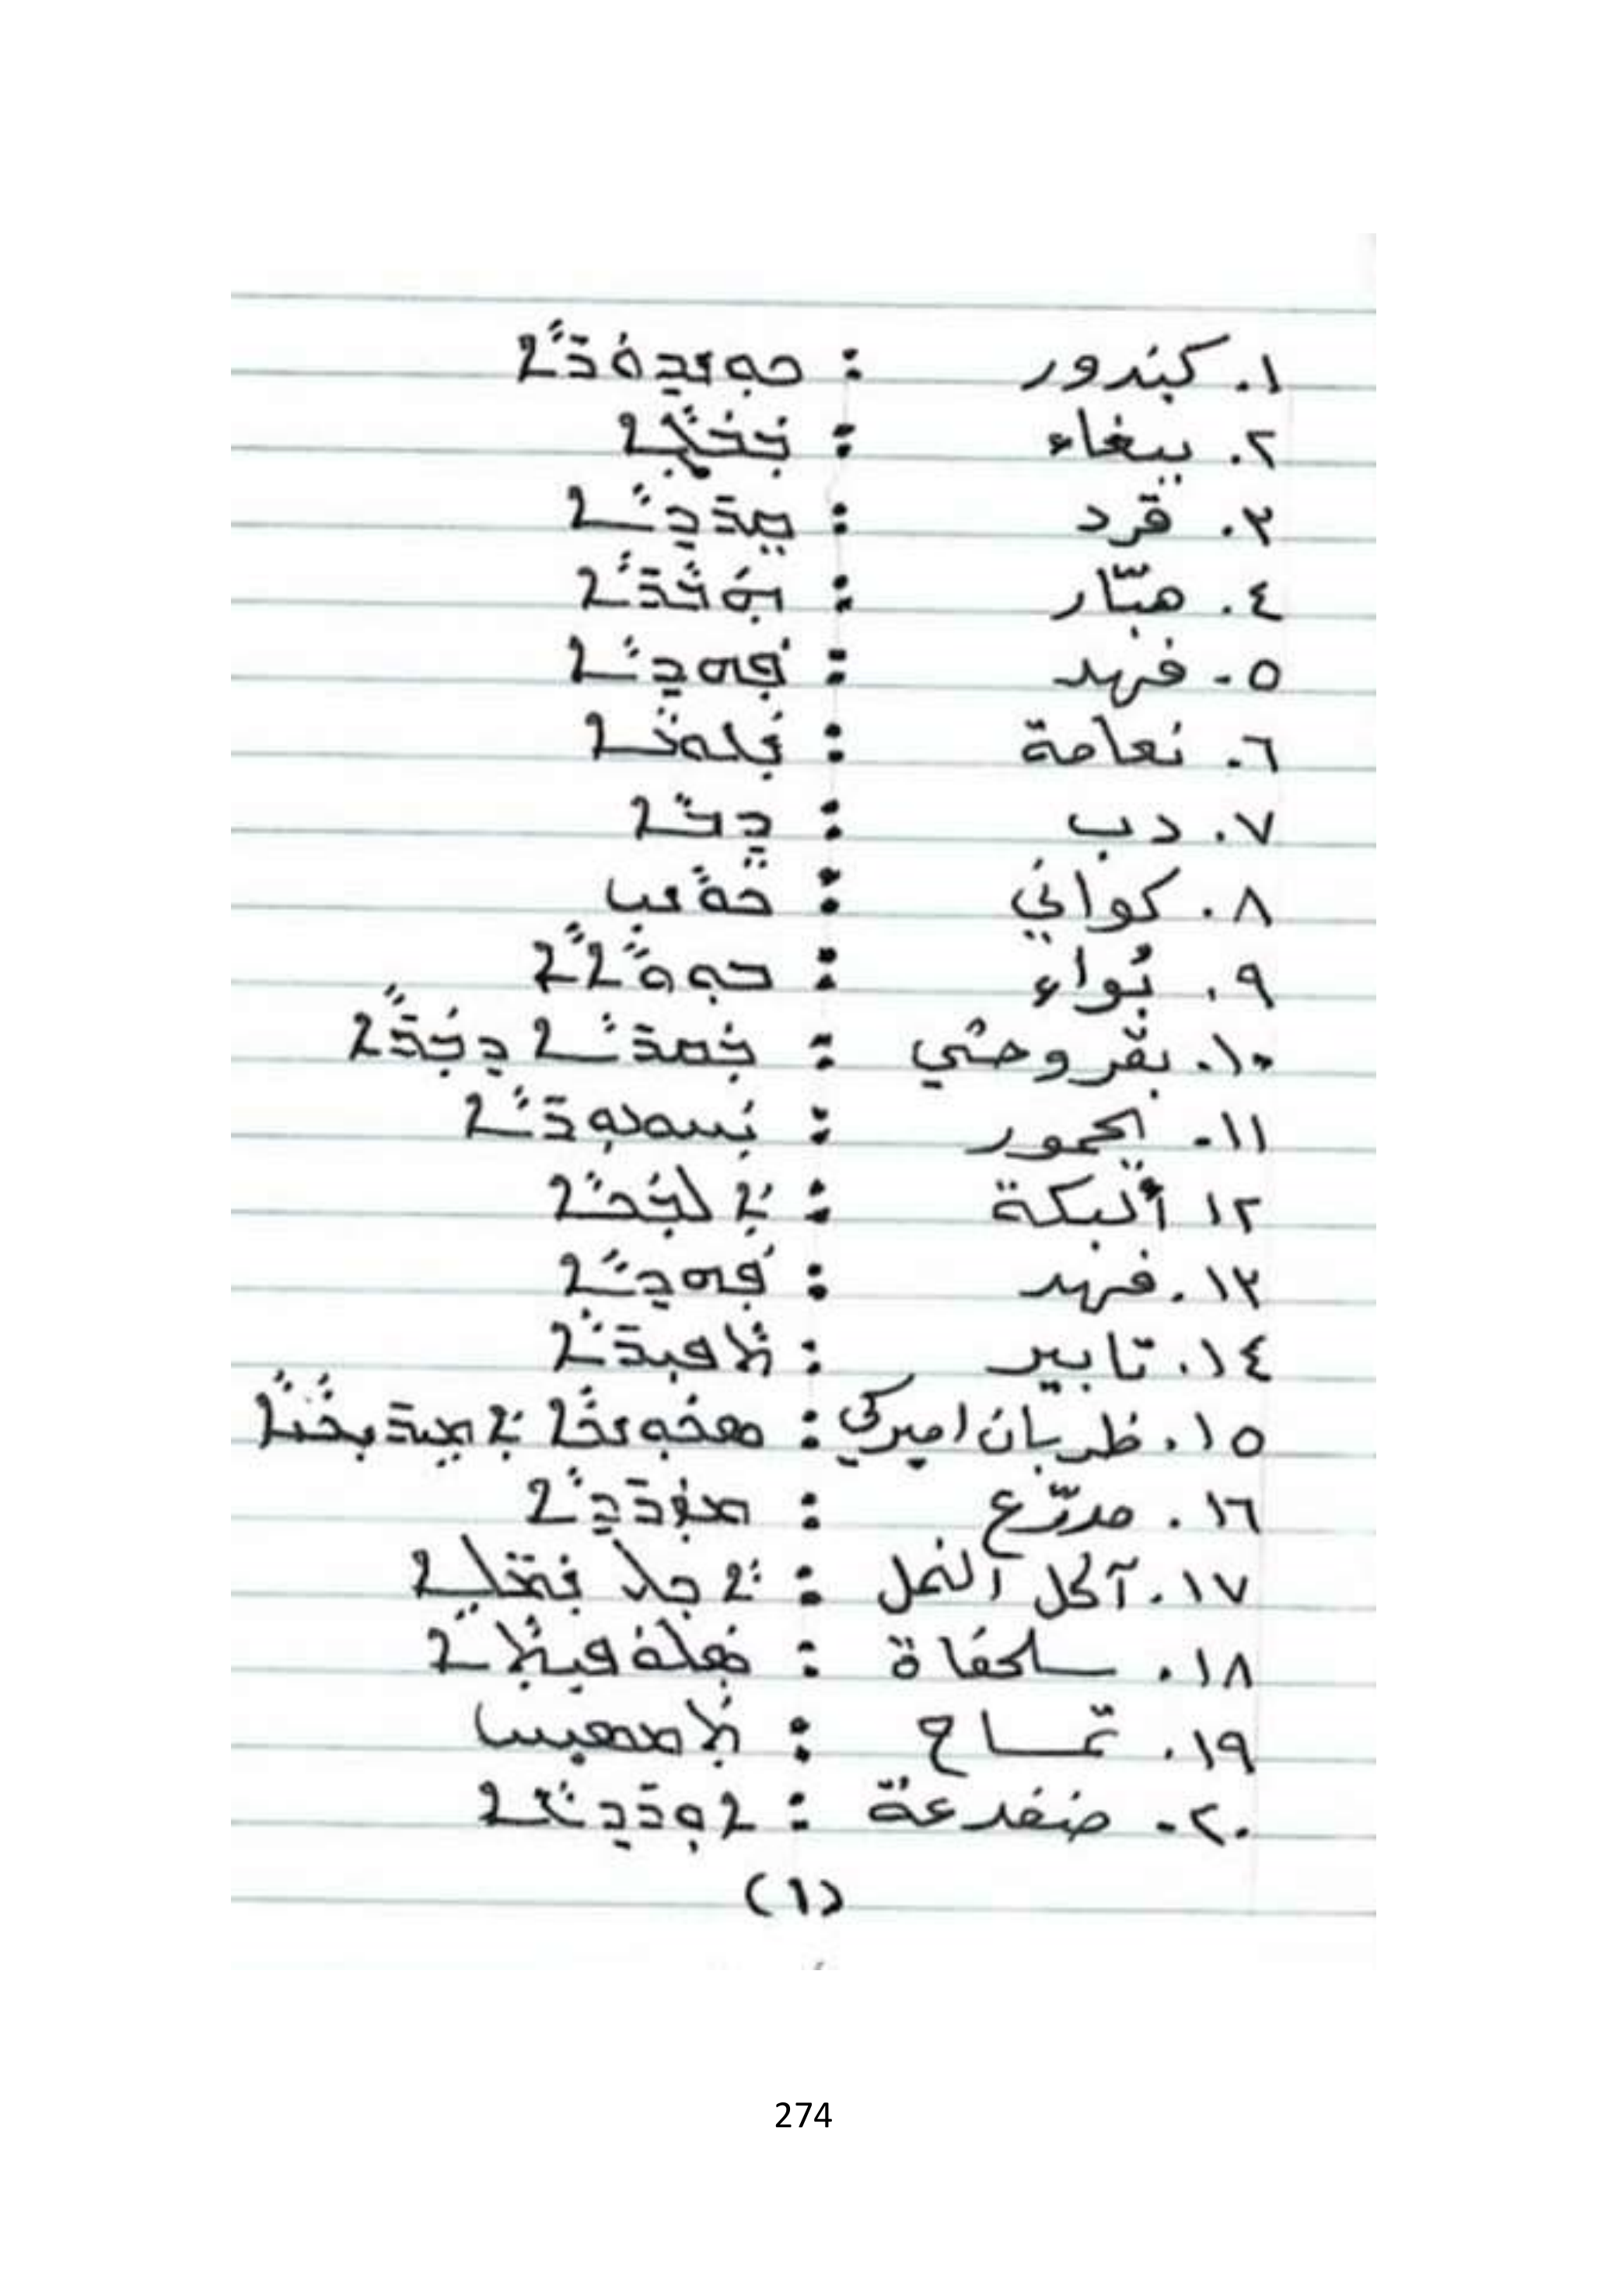 ١. كندور : ܟܘܢܕܘܪܐ
٢. ببغاء : ܒܒܓܐ
٣. قرد : ܩܪܕܐ
٤. هبّار : ܝܘܒܪܐ
٥. فهد : ܦܗܕܐ
٦. نعامة : ܢܥܡܐ
٧. دب : ܕܒܐ
٨. كواني : ܟܘܢܝ
٩. بُواء : ܒܘܘܐܐ
١٠. بقر وحشي : ܒܩܪܐ ܕܒܪܐ
١١. يحمور : ܝܚܡܘܪܐ
١٢ ألبكة : ܐܠܒܟܐ
١٣. فهد : ܦܗܕܐ
١٤. تابير : ܬܦܝܪܐ
١٥. ظربان اميركي : ܐܡܝܪܝܟܝܐ
١٦. مدرّع :
١٧. آكل النمل : ܐܟܠ
١٨. سلحفاة :
١٩. تمساح : ܬܡܣܝܚ
٢٠. ضفدعة : ܐܘܪܕܥܐ
(١)
274